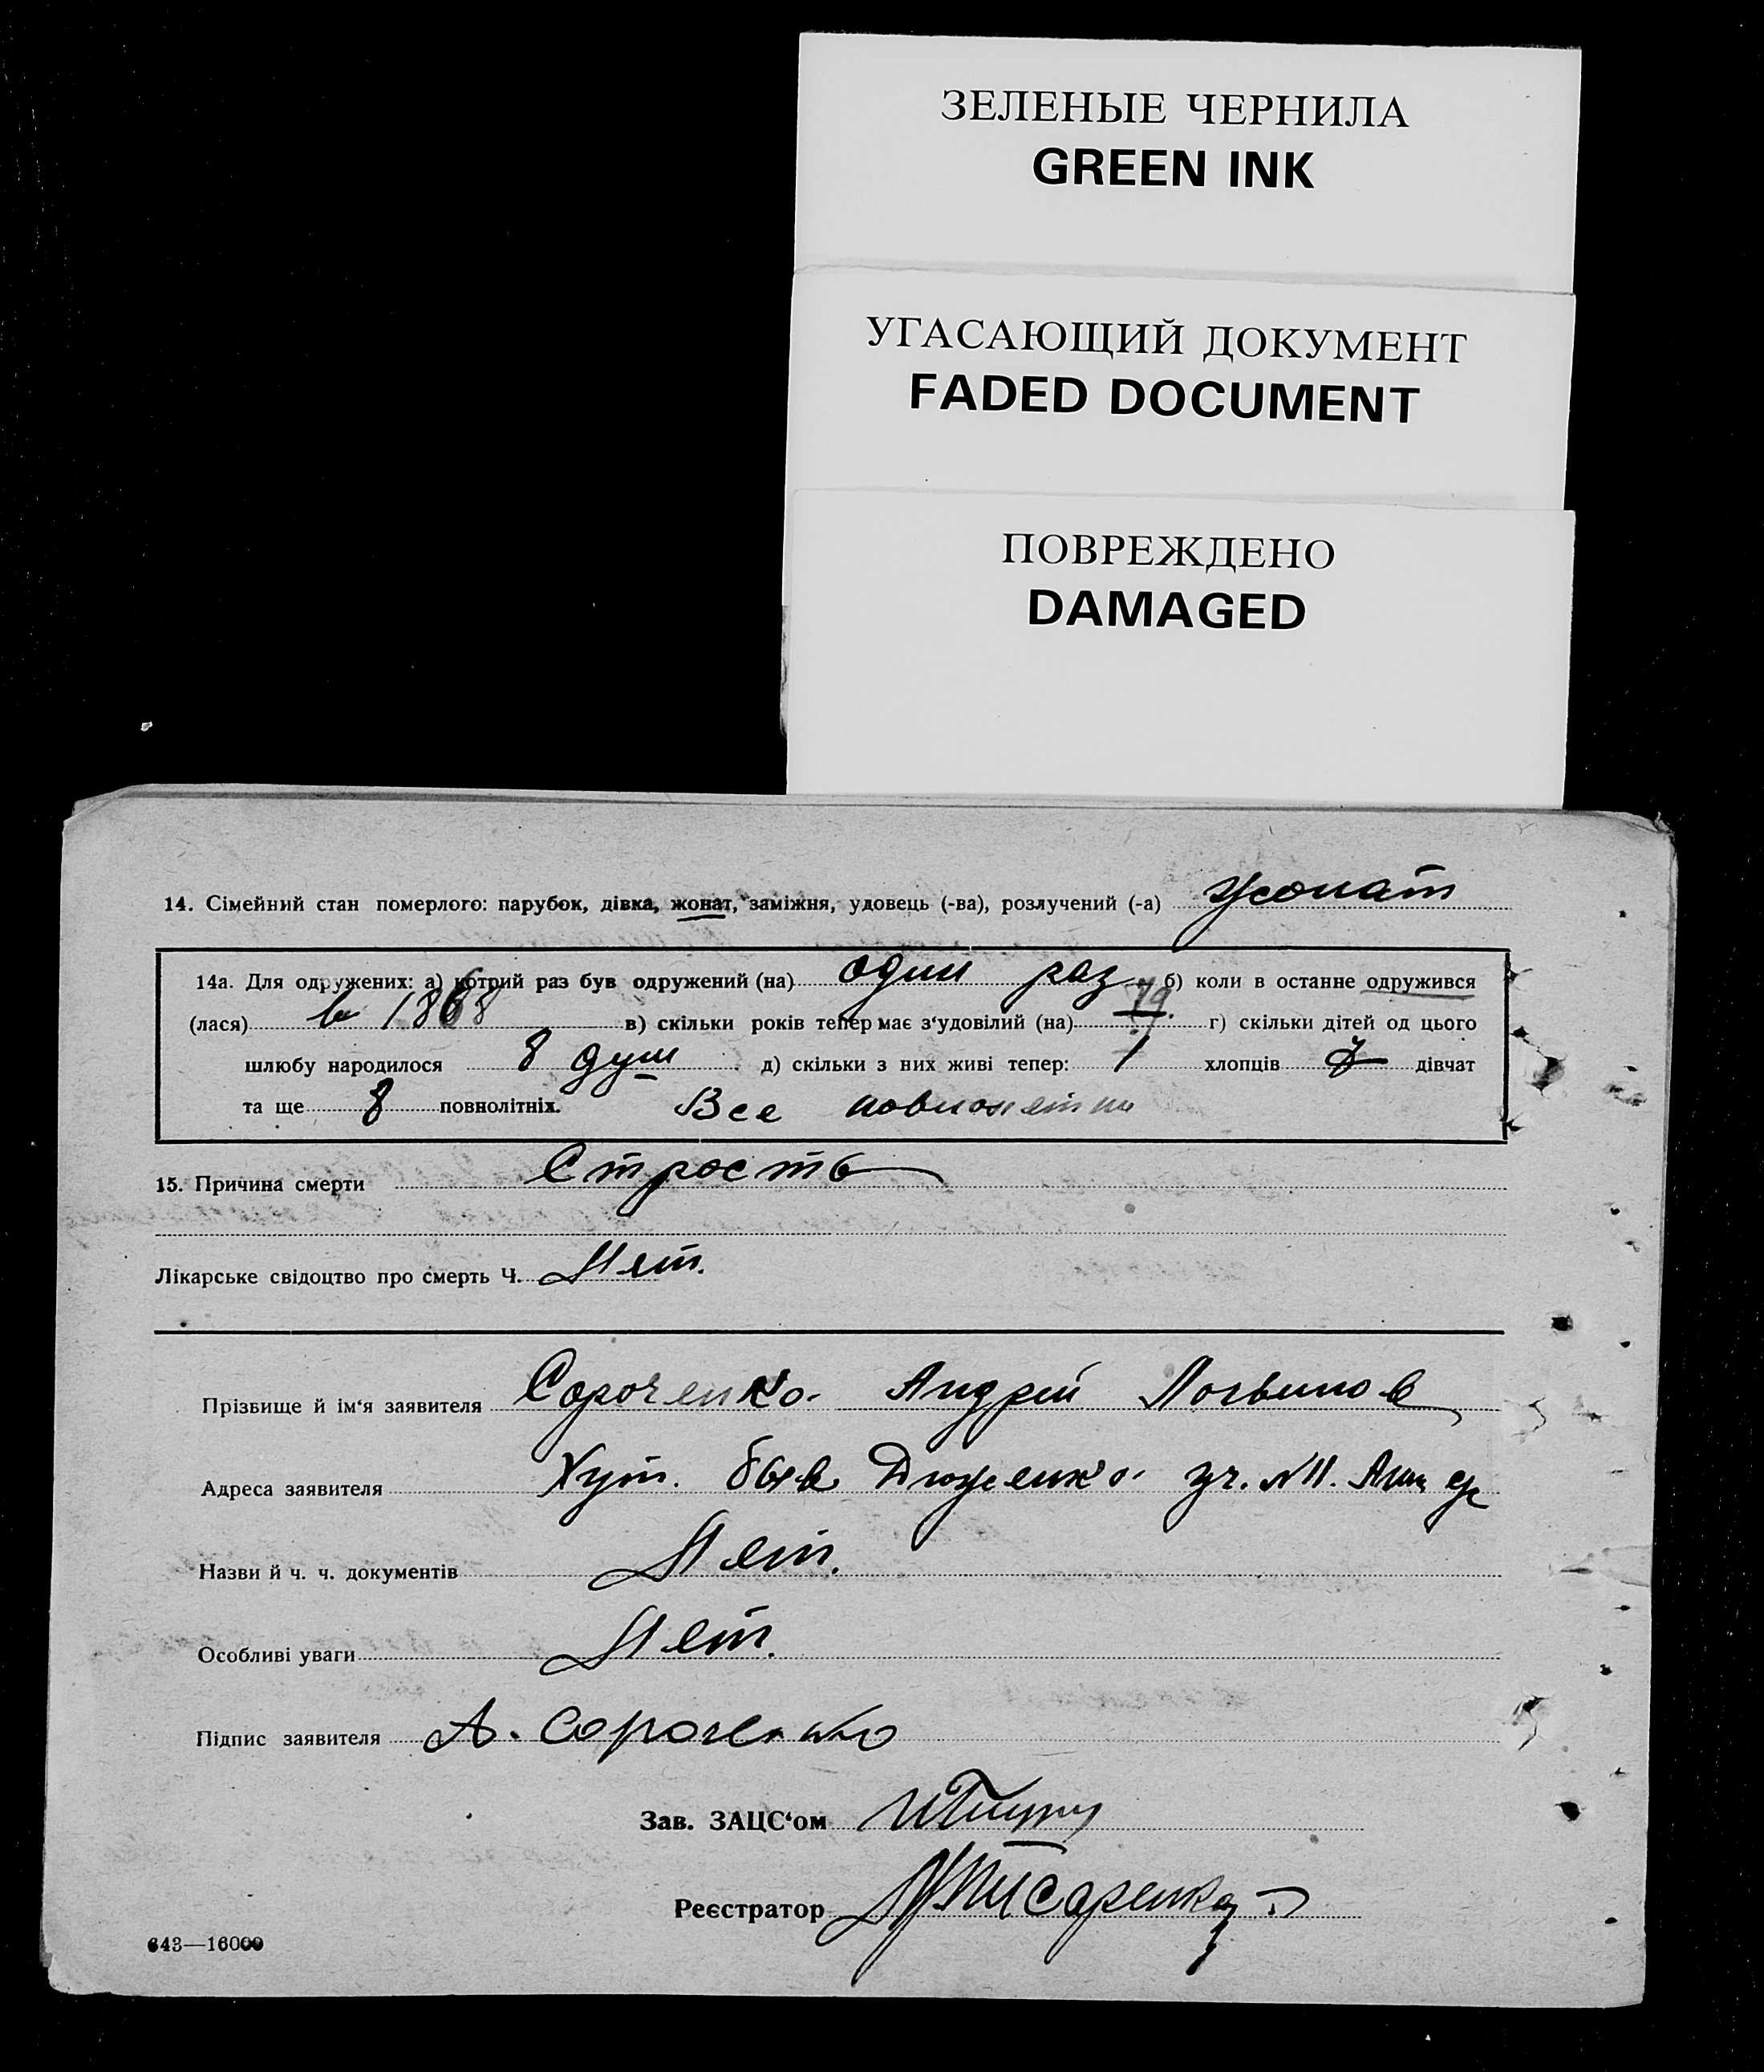 ЗЕЛЕНЫЕ ЧЕРНИЛА
GREEN INK
УГАСАЮЩИЙ ДОКУМЕНТ
FADED DOCUMENT
ПОВРЕЖДЕНО
DAMAGED
14. Сімейний стан померлого: парубок, дівка, жонат, заміжня, удовець (-ва), розлучений (-а) жонат
14а. Для одружених: а) котрий раз був одружений (на) один раз б) коли в останне одружився
(лася) в 1868 в) скільки років тепер має з‘удовілий (на) г) скільки дітей од цього
шлюбу народилося 8 душ д) скільки з них живі тепер: 1 хлопців 7 дівчат
та ще 8 повнолітніх. Все
15. Причина смерти Стрость
Лікарське свідоцтво про смерть Ч. Нет.
Прізбище й ім‘я заявителя Сороченко Андрій Логвинов
Адреса заявителя Хут. быв уч. №11.
Назви й ч. ч. документів Нет.
Особливі уваги Нет.
Підпис заявителя А. Сороченко
Зав. ЗАЦС‘ом
Реєстратор Писаренко
643—16000